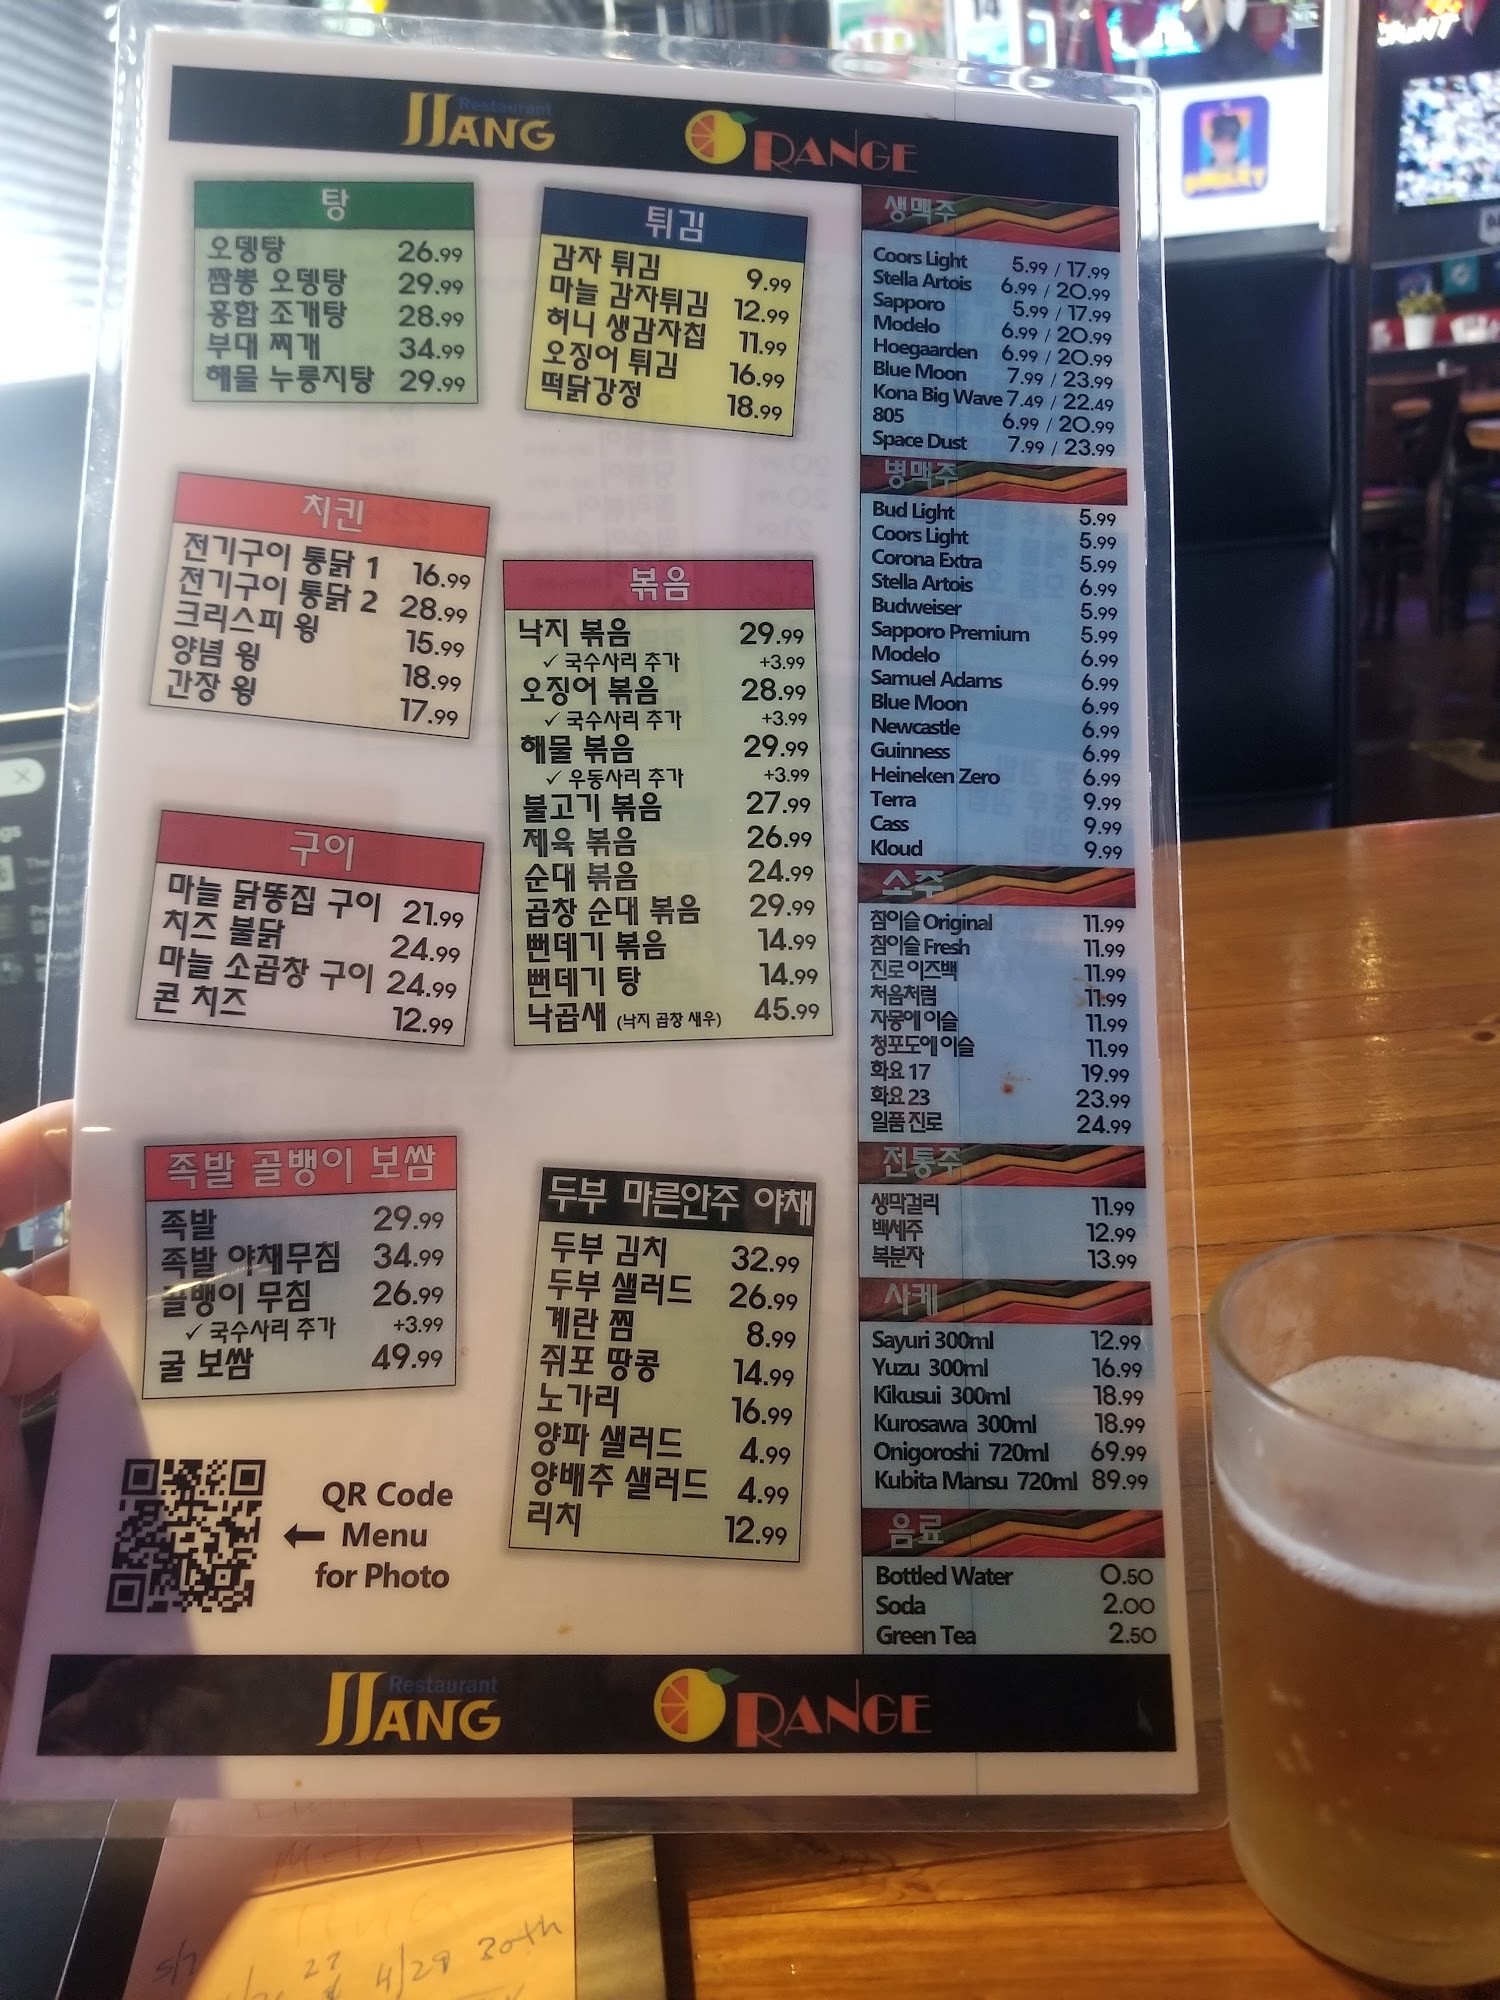 Restaurant
JJANG
ORANGE
탕
오뎅탕 26.99
짬뽕 오뎅탕 29.99
홍합 조개탕 28.99
부대 찌개 34.99
해물 누룽지탕 29.99
튀김
감자 튀김 9.99
마늘 감자튀김 12.99
허니 생감자칩 11.99
오징어 튀김 16.99
떡닭강정 18.99
치킨
전기구이 통닭 1 16.99
전기구이 통닭 2 28.99
크리스피 윙 15.99
양념 윙 18.99
간장 윙 17.99
볶음
낙지 볶음 29.99
✓ 국수사리 추가 +3.99
오징어 볶음 28.99
✓ 국수사리 추가 +3.99
해물 볶음 29.99
✓ 우동사리 추가 +3.99
불고기 볶음 27.99
제육 볶음 26.99
순대 볶음 24.99
곱창 순대 볶음 29.99
뻔데기 볶음 14.99
뻔데기 탕 14.99
낙곱새 (낙지 곱창 새우) 45.99
구이
마늘 닭똥집 구이 21.99
치즈 불닭 24.99
마늘 소곱창 구이 24.99
콘 치즈 12.99
족발 골뱅이 보쌈
족발 29.99
족발 야채무침 34.99
골뱅이 무침 26.99
✓ 국수사리 추가 +3.99
굴 보쌈 49.99
두부 마른안주 야채
두부 김치 32.99
두부 샐러드 26.99
계란 찜 8.99
쥐포 땅콩 14.99
노가리 16.99
양파 샐러드 4.99
양배추 샐러드 4.99
리치 12.99
QR Code
Menu
for Photo
생맥주
Coors Light 5.99 / 17.99
Stella Artois 6.99 / 20.99
Sapporo 5.99 / 17.99
Modelo 6.99 / 20.99
Hoegaarden 6.99 / 20.99
Blue Moon 7.99 / 23.99
Kona Big Wave 7.49 / 22.49
805 6.99 / 20.99
Space Dust 7.99 / 23.99
병맥주
Bud Light 5.99
Coors Light 5.99
Corona Extra 5.99
Stella Artois 6.99
Budweiser 5.99
Sapporo Premium 5.99
Modelo 6.99
Samuel Adams 6.99
Blue Moon 6.99
Newcastle 6.99
Guinness 6.99
Heineken Zero 6.99
Terra 9.99
Cass 9.99
Kloud 9.99
소주
참이슬 Original 11.99
참이슬 Fresh 11.99
진로 이즈백 11.99
처음처럼 11.99
자몽에 이슬 11.99
청포도에 이슬 11.99
화요 17 19.99
화요 23 23.99
일품 진로 24.99
전통주
생막걸리 11.99
백세주 12.99
복분자 13.99
사케
Sayuri 300ml 12.99
Yuzu 300ml 16.99
Kikusui 300ml 18.99
Kurosawa 300ml 18.99
Onigoroshi 720ml 69.99
Kubita Mansu 720ml 89.99
음료
Bottled Water 0.50
Soda 2.00
Green Tea 2.50
Restaurant
JJANG
ORANGE
5/7
27
4/28 30th